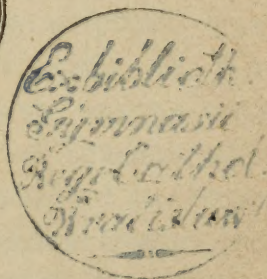 Ex biblioth.
Gymnasii
Regii Cathol.
Wratislaw.